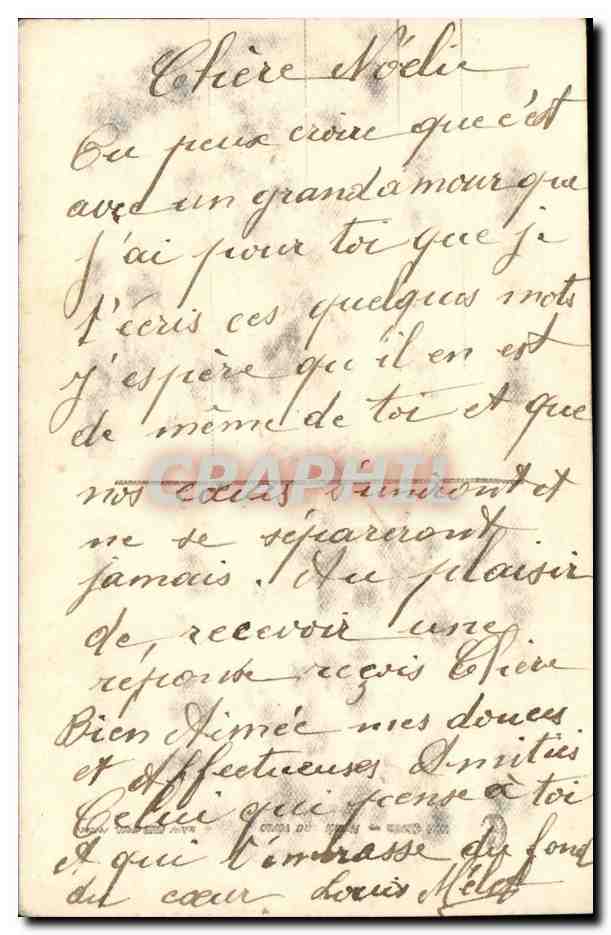 Chère Noélie
Tu peux croire que c'est
avec un grand amour que
j'ai pour toi que je
t'écris ces quelques mots
J'espère qu'il en est
de même de toi et que
nos cœurs s'uniront et
ne se sépareront
jamais. Au plaisir
de, recevoir une
réponse reçois Chère
Bien Aimée mes douces
et Affectueuses Amitiés
Celui qui pense à toi
A qui t'embrasse du fond
du cœur Louis
CRAPHTI